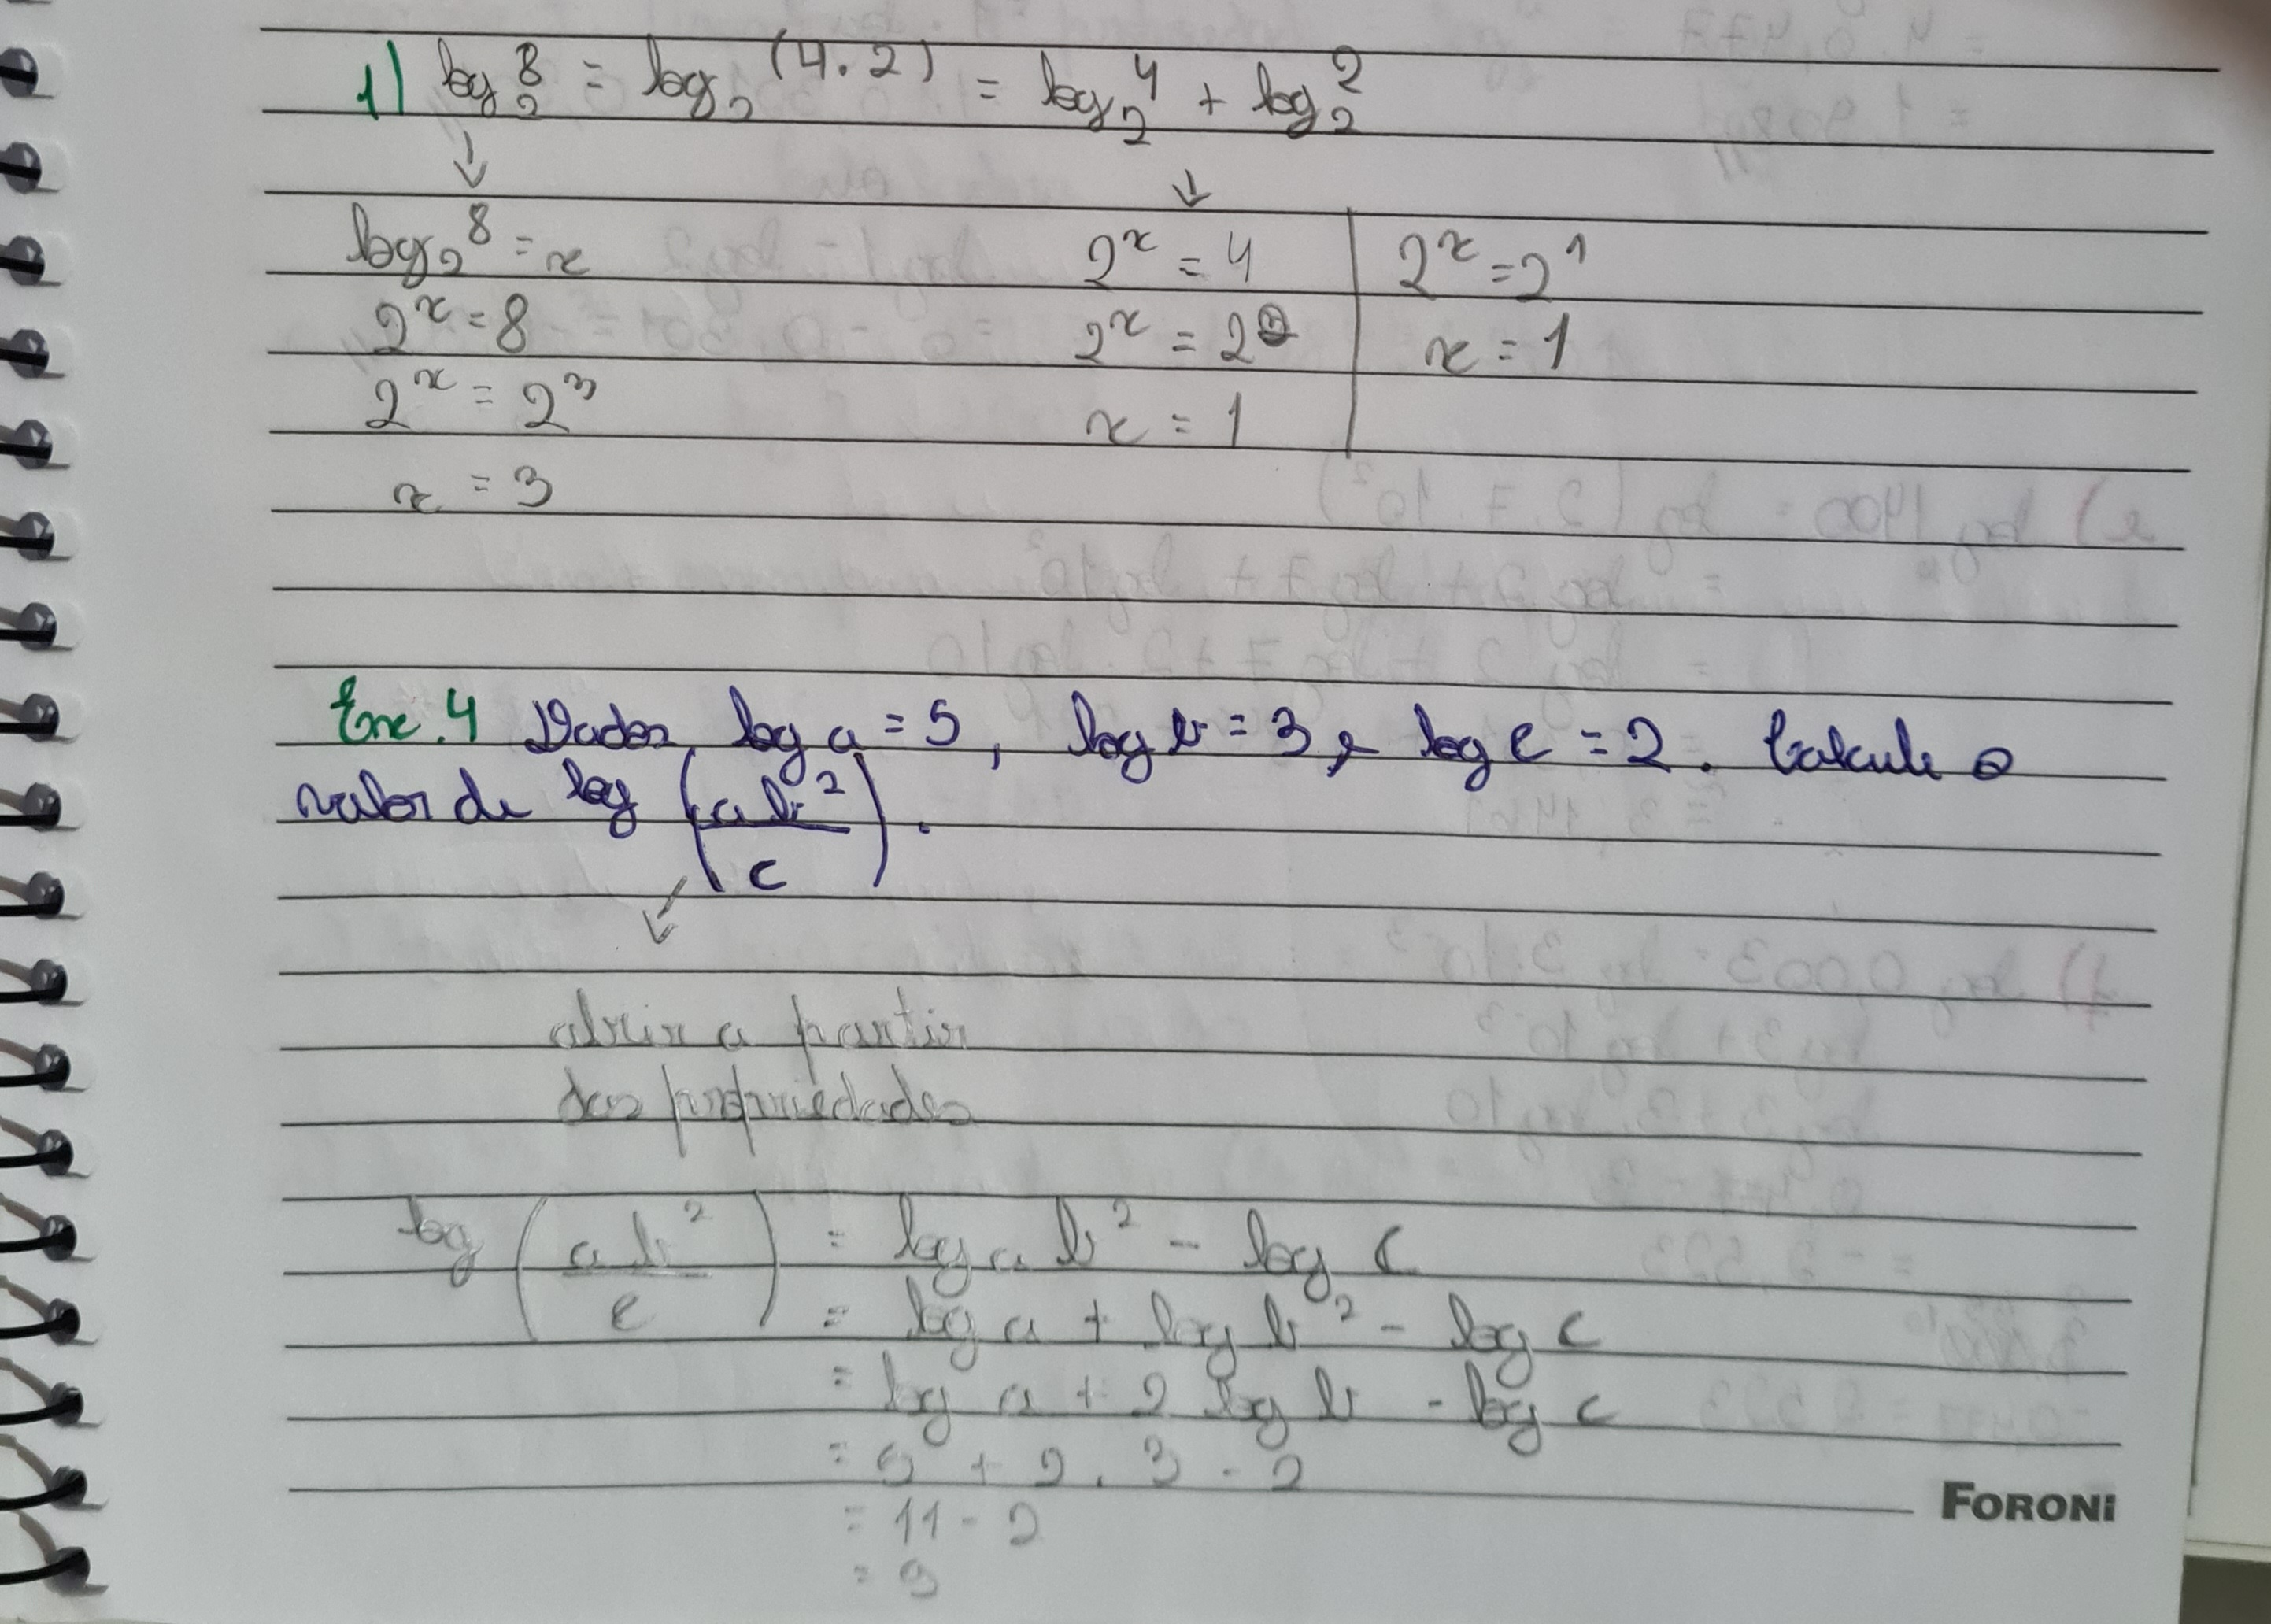 1) log₂ 8 = log₂ (4.2) = log₂ 4 + log₂ 2
↓ ↓
log₂ 8 = x
2ˣ = 8
2ˣ = 2³
x = 3
2ˣ = 4
2ˣ = 2²
x = 1
2ˣ = 2¹
x = 1
Exe. 4 Dados, log a = 5, log b = 3, e log c = 2. Calcule o
valor de log (ab²/c).
abrir a partir
das propriedades
log (ab²/c) = log ab² - log c
= log a + log b² - log c
= log a + 2 log b - log c
= 5 + 2 . 3 - 2
= 11 - 2
= 9
FORONI